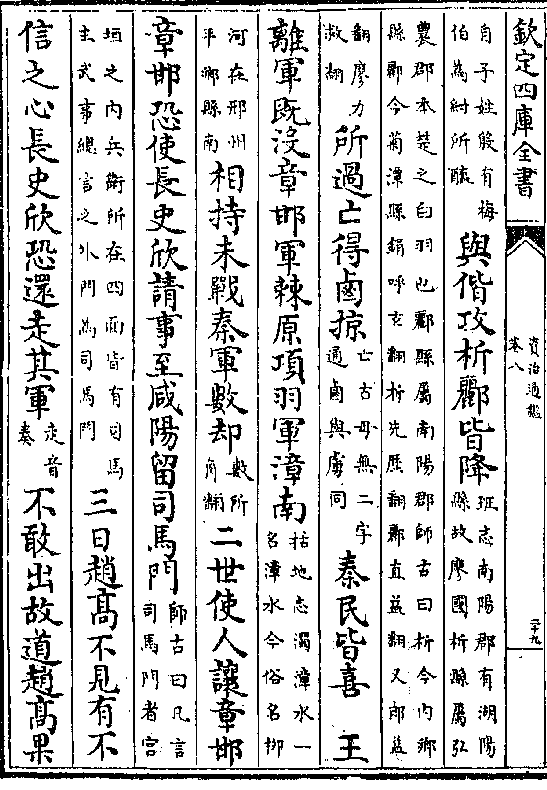 欽定四庫全書
資治通鑑
卷八
二十九
自子姓殷有梅
伯為紂所醢
與偕攻析酈皆降
班志南陽郡有湖陽
縣故廖國析縣屬弘
農郡本楚之白羽也酈縣屬南陽郡師古曰析今内鄉
縣酈今菊潭縣鍚呼玄翻析先歷翻酈直益翻又郎益
翻廖力
救翻
所過亡得鹵掠
亡古毋無二字
通鹵與虜同
秦民皆喜
王
離軍既没章邯軍棘原項羽軍漳南
括地志濁漳水一
名漳水今俗名柳
河在邢州
平鄉縣南
相持未戰秦軍數却
數所
角翻
二世使人讓章邯
章邯恐使長史欣請事至咸陽留司馬門
師古曰凡言
司馬門者宫
垣之内兵衛所在四面皆有司馬
主武事總言之外門為司馬門
三日趙高不見有不
信之心長史欣恐還走其軍
走音
奏
不敢出故道趙高果